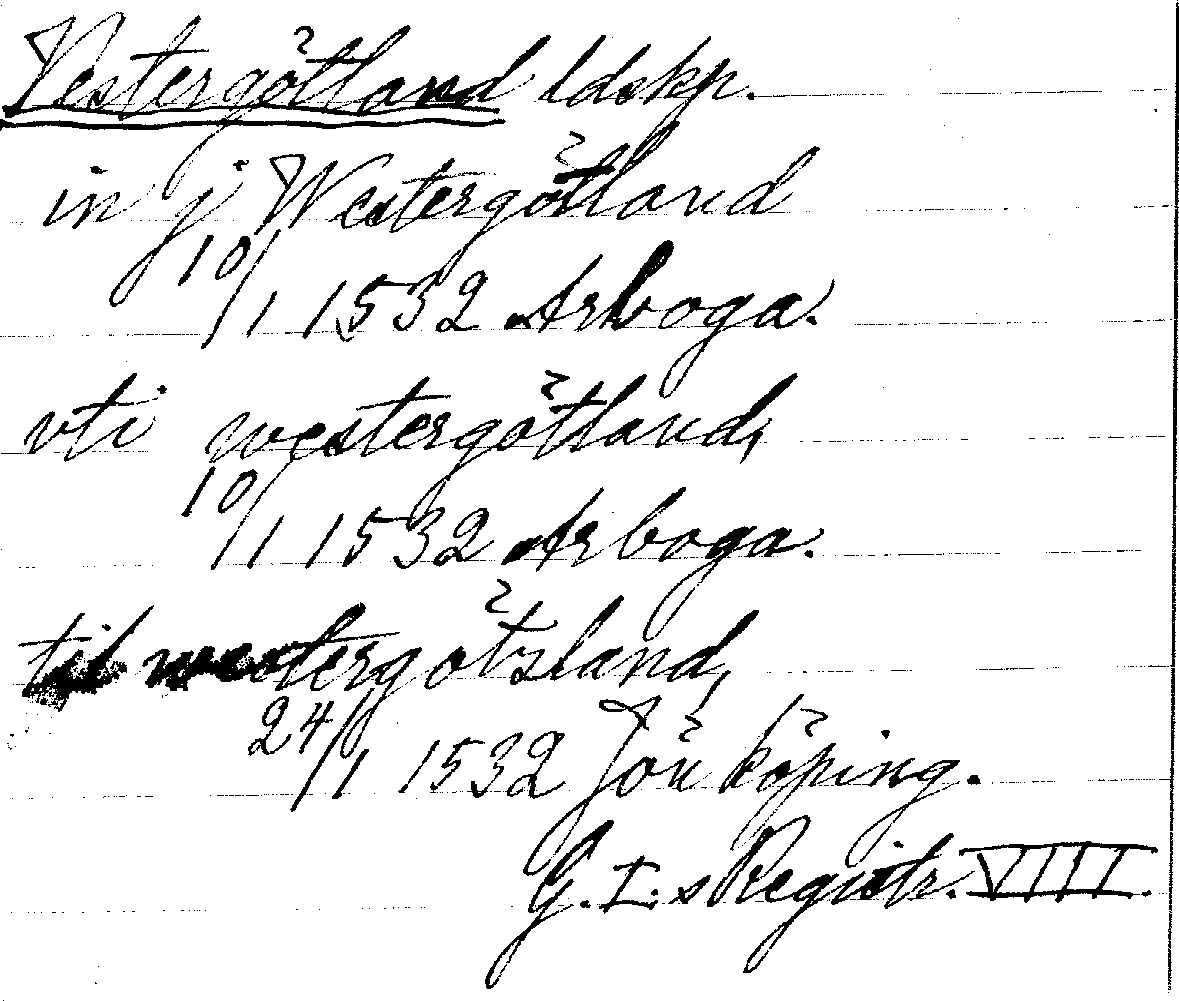 Vestergötland ldskp.
in j Westergötland
10/1 1532 Arboga.
vti westergötland,
10/1 1532 Arboga.
til westergötzland,
24/1 1532 Jönköping.
G. I:s Registr. VIII.